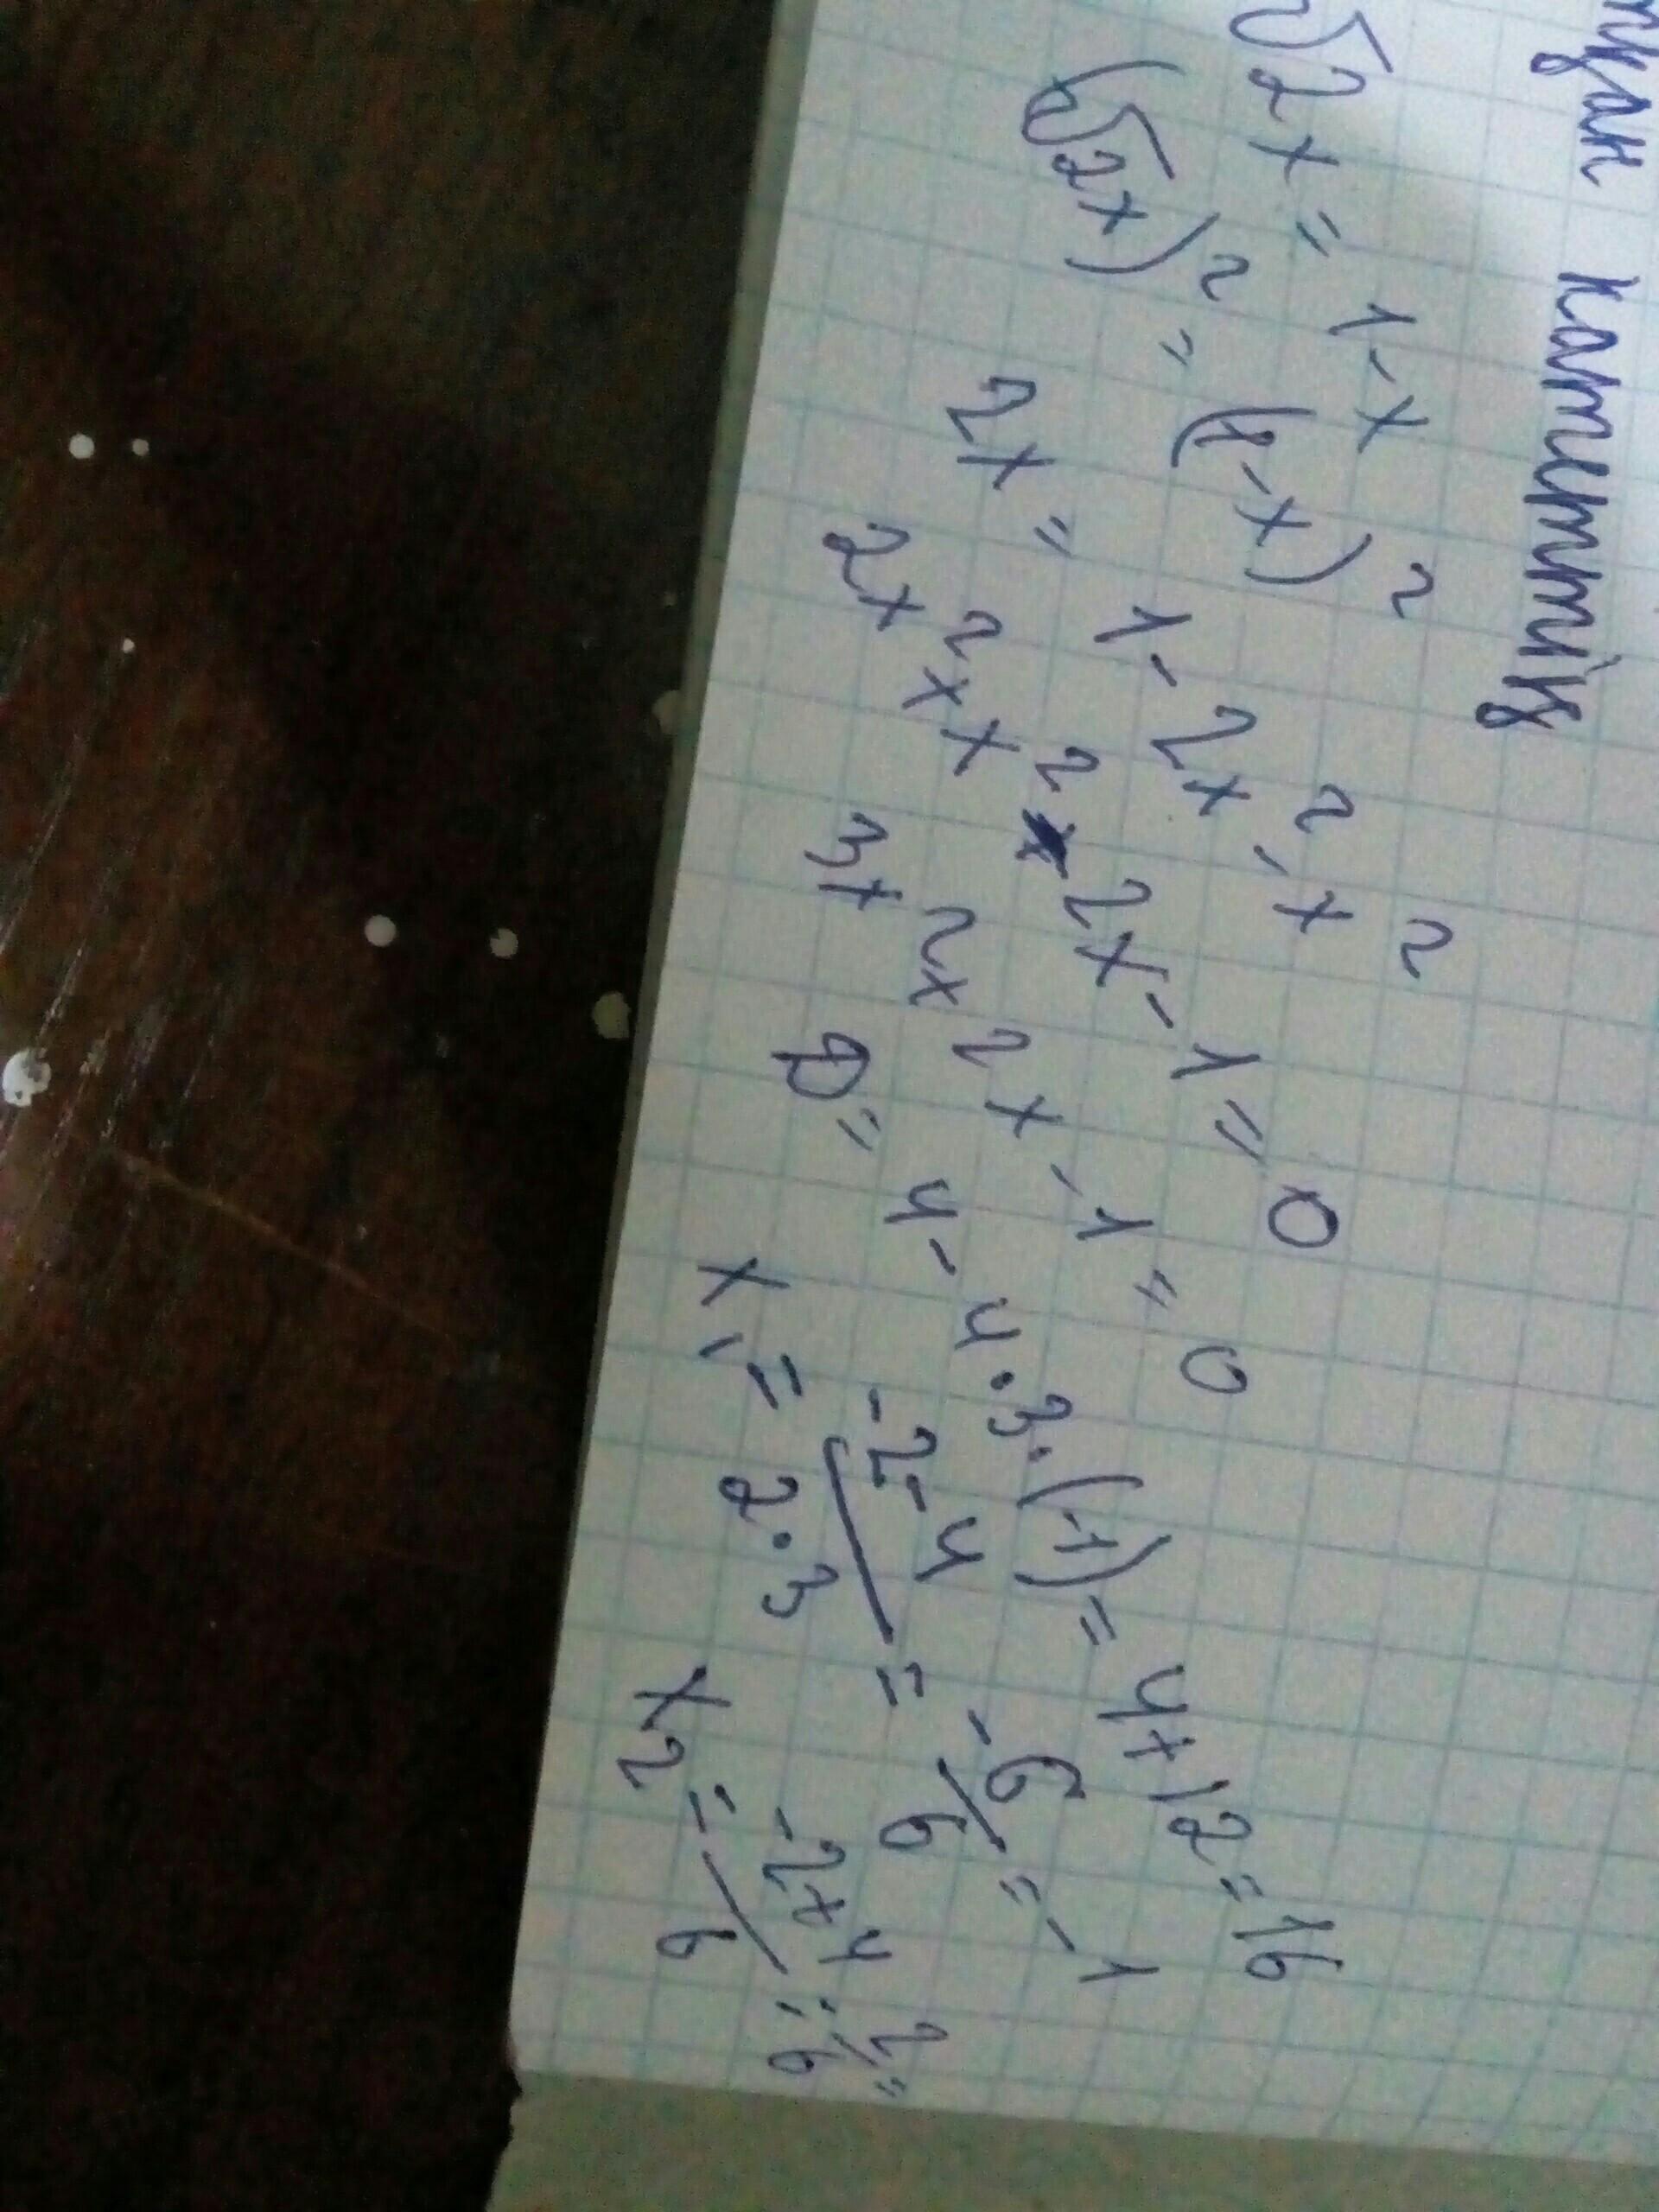 қатеттің
√2x = 1-x
(√2x)² = (1-x)²
2x = 1-2x²-x²
2x²+x²+2x-1=0
3x²+2x-1=0
D=4-4·3·(-1)=4+12=16
x₁= -2-4/2·3 = -6/6 = -1
x₂= -2+4/6 = 2/6 =